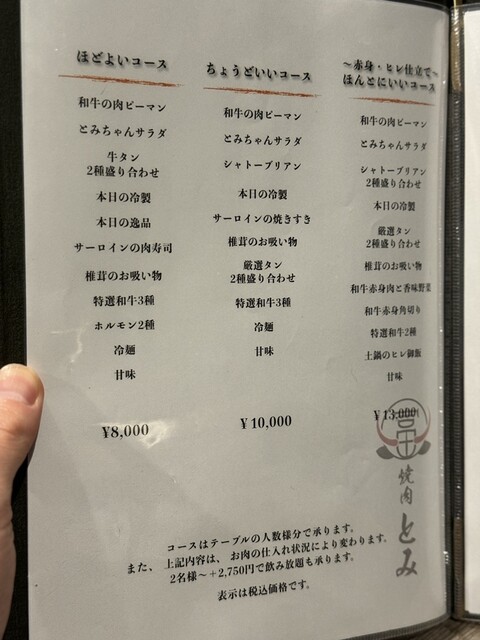 ほどよいコース
和牛の肉ピーマン
とみちゃんサラダ
牛タン
2種盛り合わせ
本日の冷製
本日の逸品
サーロインの肉寿司
椎茸のお吸い物
特選和牛3種
ホルモン2種
冷麺
甘味
¥8,000
ちょうどいいコース
和牛の肉ピーマン
とみちゃんサラダ
シャトーブリアン
本日の冷製
サーロインの焼きすき
椎茸のお吸い物
厳選タン
2種盛り合わせ
特選和牛3種
冷麺
甘味
¥10,000
~赤身・ヒレ仕立て~
ほんとにいいコース
和牛の肉ピーマン
とみちゃんサラダ
シャトーブリアン
2種盛り合わせ
本日の冷製
厳選タン
2種盛り合わせ
椎茸のお吸い物
和牛赤身肉と香味野菜
和牛赤身角切り
特選和牛2種
土鍋のヒレ御飯
甘味
¥13,000
焼肉とみ
コースはテーブルの人数様分で承ります。
また、上記内容は、お肉の仕入れ状況により変わります。
2名様~+2,750円で飲み放題も承ります。
表示は税込価格です。